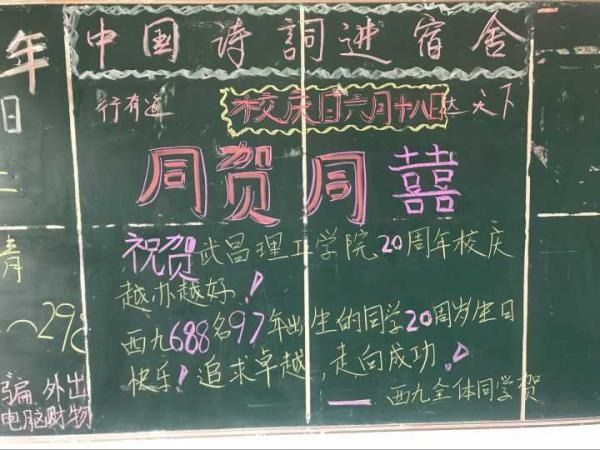 中国诗詞进宿舍
行有道
校庆日六月十八日
达天下
同贺同囍
祝贺武昌理工学院20周年校庆
越办越好！
西九688名97年出生的同学20周岁生日
快乐！追求卓越，走向成功！
——西九全体同学贺
年
日
二
青
～298
骗、外出
电脑财物